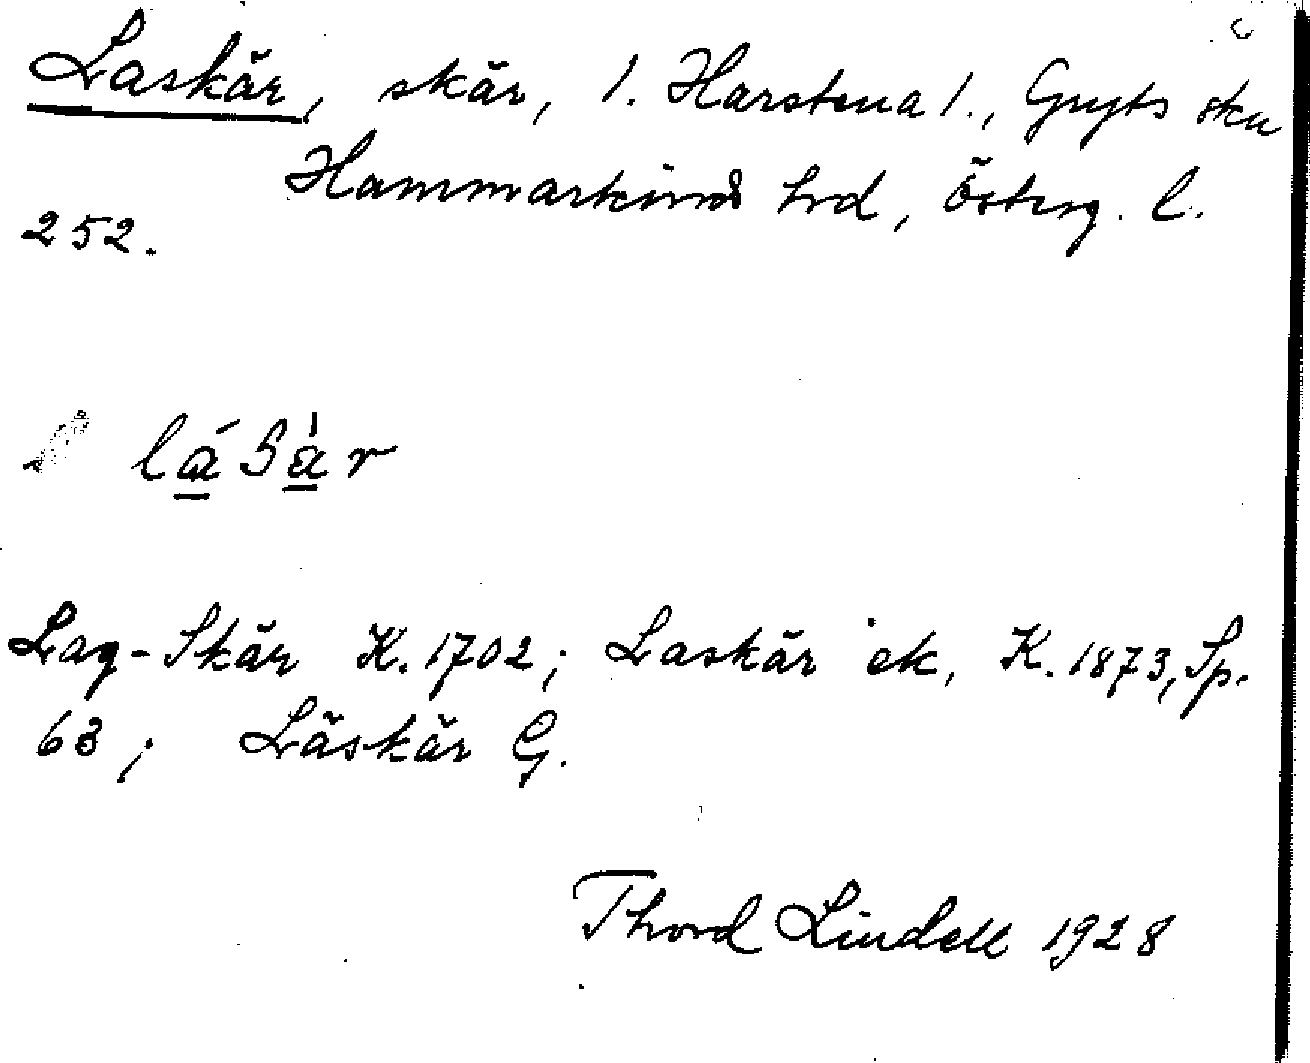 Laskär, skär, l. Harstena l., Gryts skn
Hammarkinds hrd, Österg. l.
252.
Lag-Skär K. 1702; Laskär ek, K. 1873, Sp.
63; Läskär G.
Thord Lindell 1928